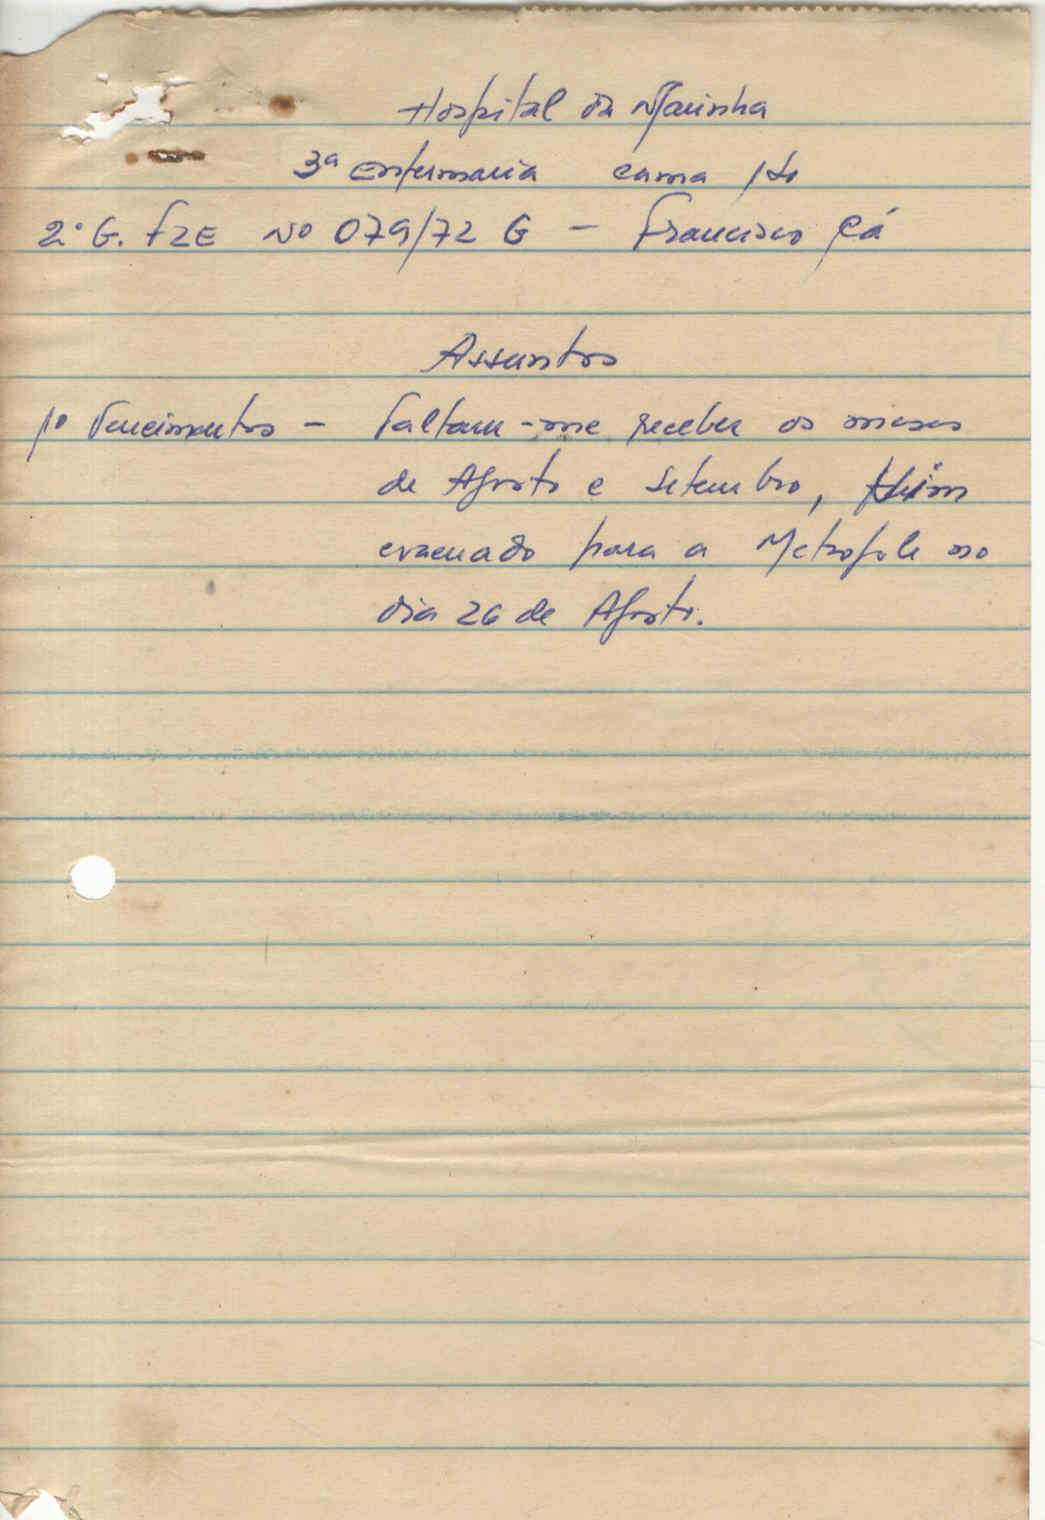 Hospital da Marinha
3ª Enfermaria cama
2º G. FZE Nº 079/72 G - Francisco Cá
Assuntos
1º Vencimentos - Faltam-me receber os meses
de Agosto e Setembro, vim
evacuado para a Metropole no
dia 26 de Agosto.